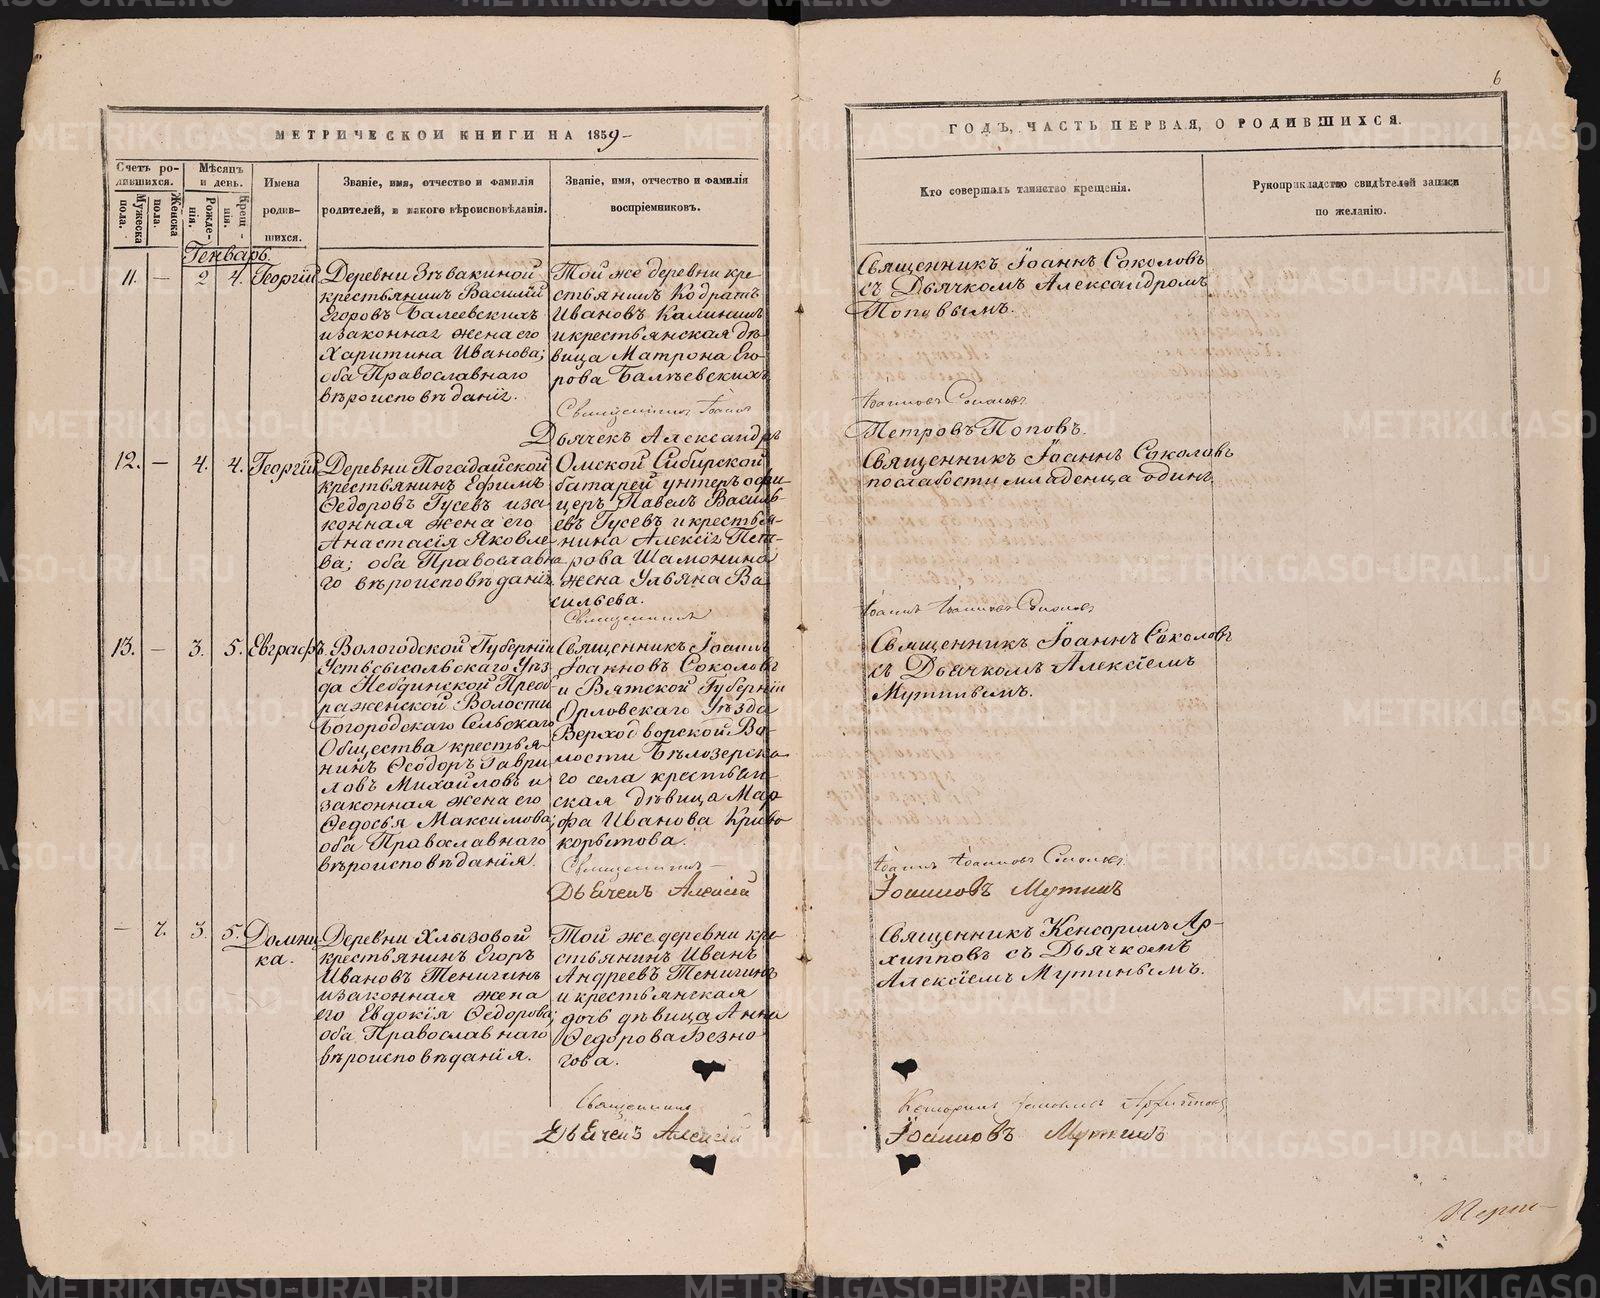 6
МЕТРИЧЕСКОИ КНИГИ НА 1859
ГОДЪ, ЧАСТЬ ПЕРВАЯ, О РОДИВШИХСЯ.
Счетъ ро-
дившихся.
Мужеска
пола.
Женска
пола.
Мѣсяцъ
и день.
Рожде-
нія.
Крещ-
нія.
Имена
родив-
шихся.
Званіе, имя, отчество и фамилія
родителей, и какого вѣроисповѣданія.
Званіе, имя, отчество и фамилія
воспріемниковъ.
Кто совершалъ таинство крещенія.
Рукоприкладство свидѣтелей записи
по желанію.
Генварь.
11. — 2 4. Георгій
Деревни Зѣвакиной
крестьянинъ Василій
Егоровъ Балеевскихъ
и законная жена его
Харитина Иванова;
оба Православнаго
вѣроисповѣданія.
Той же деревни кре-
стьянинъ Кодратъ
Ивановъ Калининъ
и крестьянская дѣ-
вица Матрона Его-
рова Балѣевскихъ
Священникъ Іоаннъ
Дьячекъ Александръ
Священникъ Іоаннъ Соколовъ
съ Дьячкомъ Александромъ
Поповымъ.
Іоанновъ Соколовъ
Петровъ Поповъ.
12. — 4. 4. Георгій
Деревни Погадайской
крестьянинъ Ефимъ
Ѳедоровъ Гусевъ и за-
конная жена его
Анастасія Яковле-
ва; оба Православна
го вѣроисповѣданія
Омской Сибирской
батареи унтеръ офи-
церъ Павелъ Василь-
евъ Гусевъ и крестья-
нина Алексія Пет-
рова Шамонина
жена Ульяна Ва
сильева.
Священникъ
Священникъ Іоаннъ Соколовъ
по слабости младенца одинъ.
Іоаннъ Іоанновъ Соколовъ
13. — 3. 5. Евграфъ.
Вологодской Губерніи
Устьсысольскаго Уѣз
да Небдинской Преоб-
раженской Волости
Богородскаго Сельскаго
Общества крестья-
нинъ Ѳеодоръ Гаври
ловъ Михайловъ и
законная жена его
Ѳедосья Максимова;
оба Православнаго
вѣроисповѣданія.
Священникъ Іоаннъ
Іоанновъ Соколовъ
и Вятской Губерніи
Орловскаго Уѣзда
Верходворской Во-
лости Бѣлозерска-
го села крестьян-
ская дѣвица Мар-
фа Иванова Криво
корытова.
Священникъ
Дьячекъ Алексій
Священникъ Іоаннъ Соколовъ
съ Дьячкомъ Алексіемъ
Мутинымъ.
Іоаннъ Іоанновъ Соколовъ
Іоанновъ Мутинъ
— 7. 3. 5. Домни
ка.
Деревни Хлызовой
крестьянинъ Егоръ
Ивановъ Тенигинъ
и законная жена
его Евдокія Ѳедорова;
оба Православнаго
вѣроисповѣданія.
Той же деревни кре-
стьянинъ Иванъ
Андреевъ Тенигинъ
и крестьянская
дочь дѣвица Анна
Ѳедорова Безно-
гова.
Священникъ
Дьячекъ Алексій
Священникъ Кенсоринъ Ар-
хипповъ съ Дьячкомъ
Алексіемъ Мутинымъ.
Кенсоринъ Архиповъ
Іоанновъ Мутинъ
METRIKI.GASO-URAL.RU